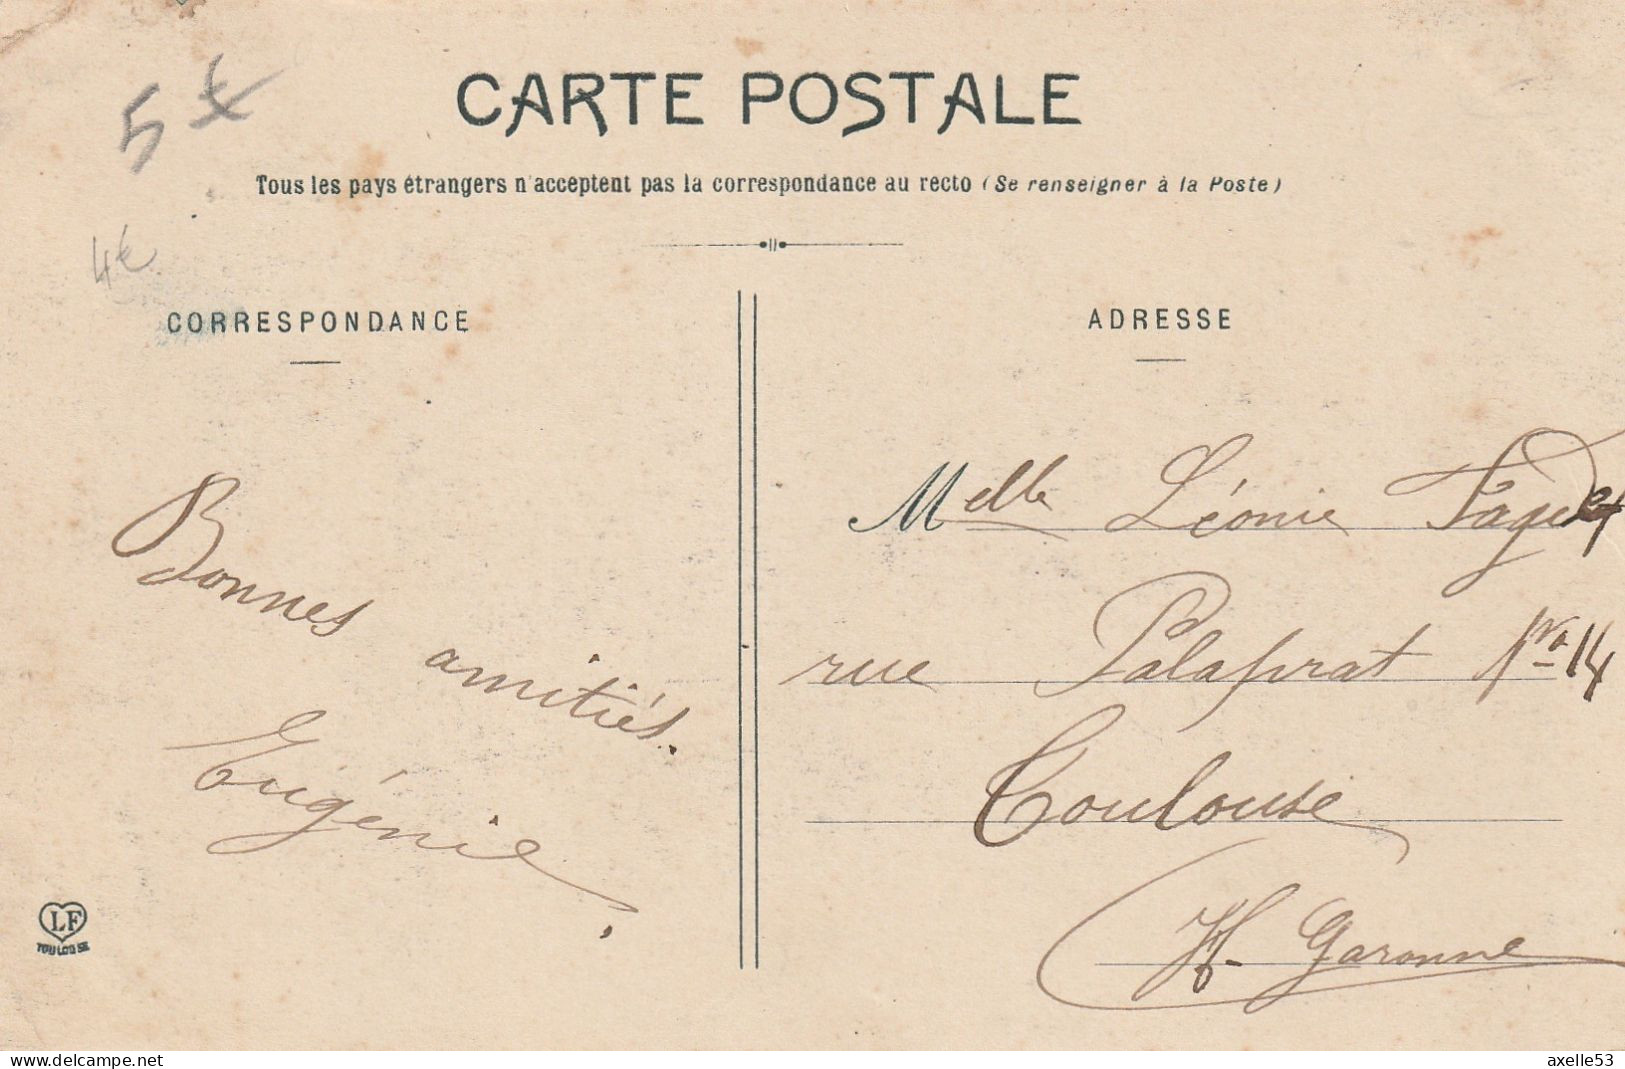 CARTE POSTALE
5€
Tous les pays étrangers n'acceptent pas la correspondance au recto (Se renseigner à la Poste)
4€
CORRESPONDANCE
ADRESSE
Bonnes
amitiés.
Eugénie.
LF
TOULOUSE
Melle Léonie Paget
rue Palaprat No 14
Toulouse
Hte Garonne
delcampe.net
axelle53